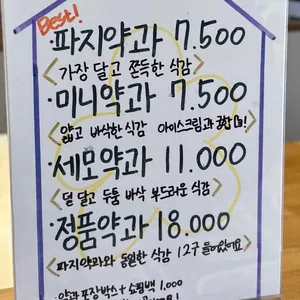 Best!
·파지약과 7.500
<가장 달고 쫀득한 식감>
·미니약과 7.500
<얇고 바삭한 식감 아이스크림과 궁합 Good!>
·세모약과 11.000
<덜 달고 두툼 바삭 부드러운 식감>
·정품약과 18.000
<파지약과와 동일한 식감 12구 들어있어요>
·약과 포장박스 + 쇼핑백 1,000